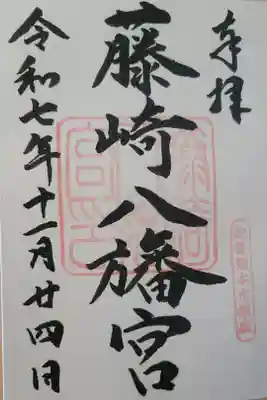 奉拝
藤崎八旛宮
令和七年十一月廿四日